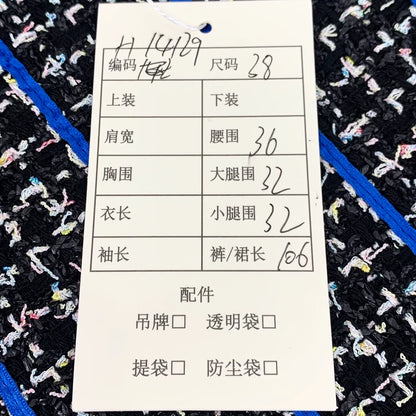 H 14129
编码 尺码 38
上装 下装
肩宽 腰围 36
胸围 大腿围 32
衣长 小腿围 32
袖长 裤/裙长 106
配件
吊牌□ 透明袋□
提袋□ 防尘袋□